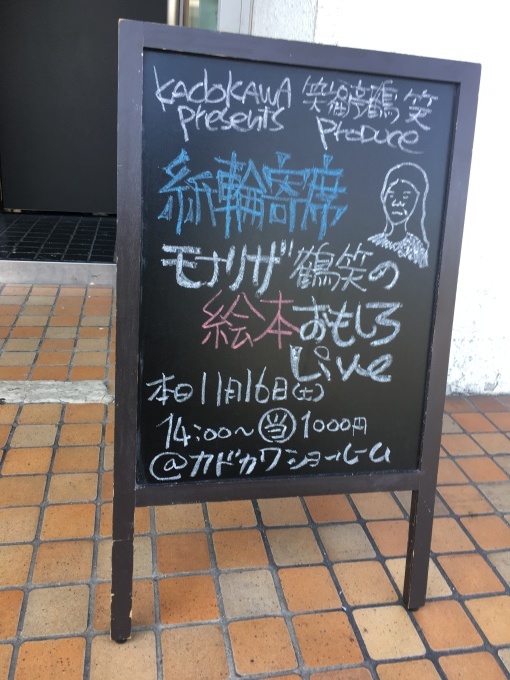 KADOKAWA 笑福亭鶴笑
presents Produce
紙輪寄席
モナリザ鶴笑の
絵本おもしろ
Live
本日11月16日(土)
14:00~ 当 1000円
@カドカワショールーム